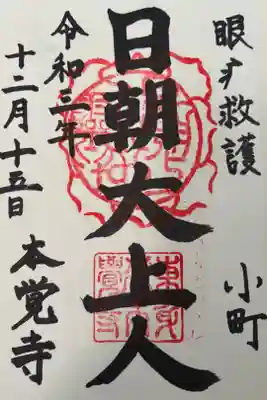 眼を救護
小町
日朝大上人
令和三年
十二月十五日
本覚寺